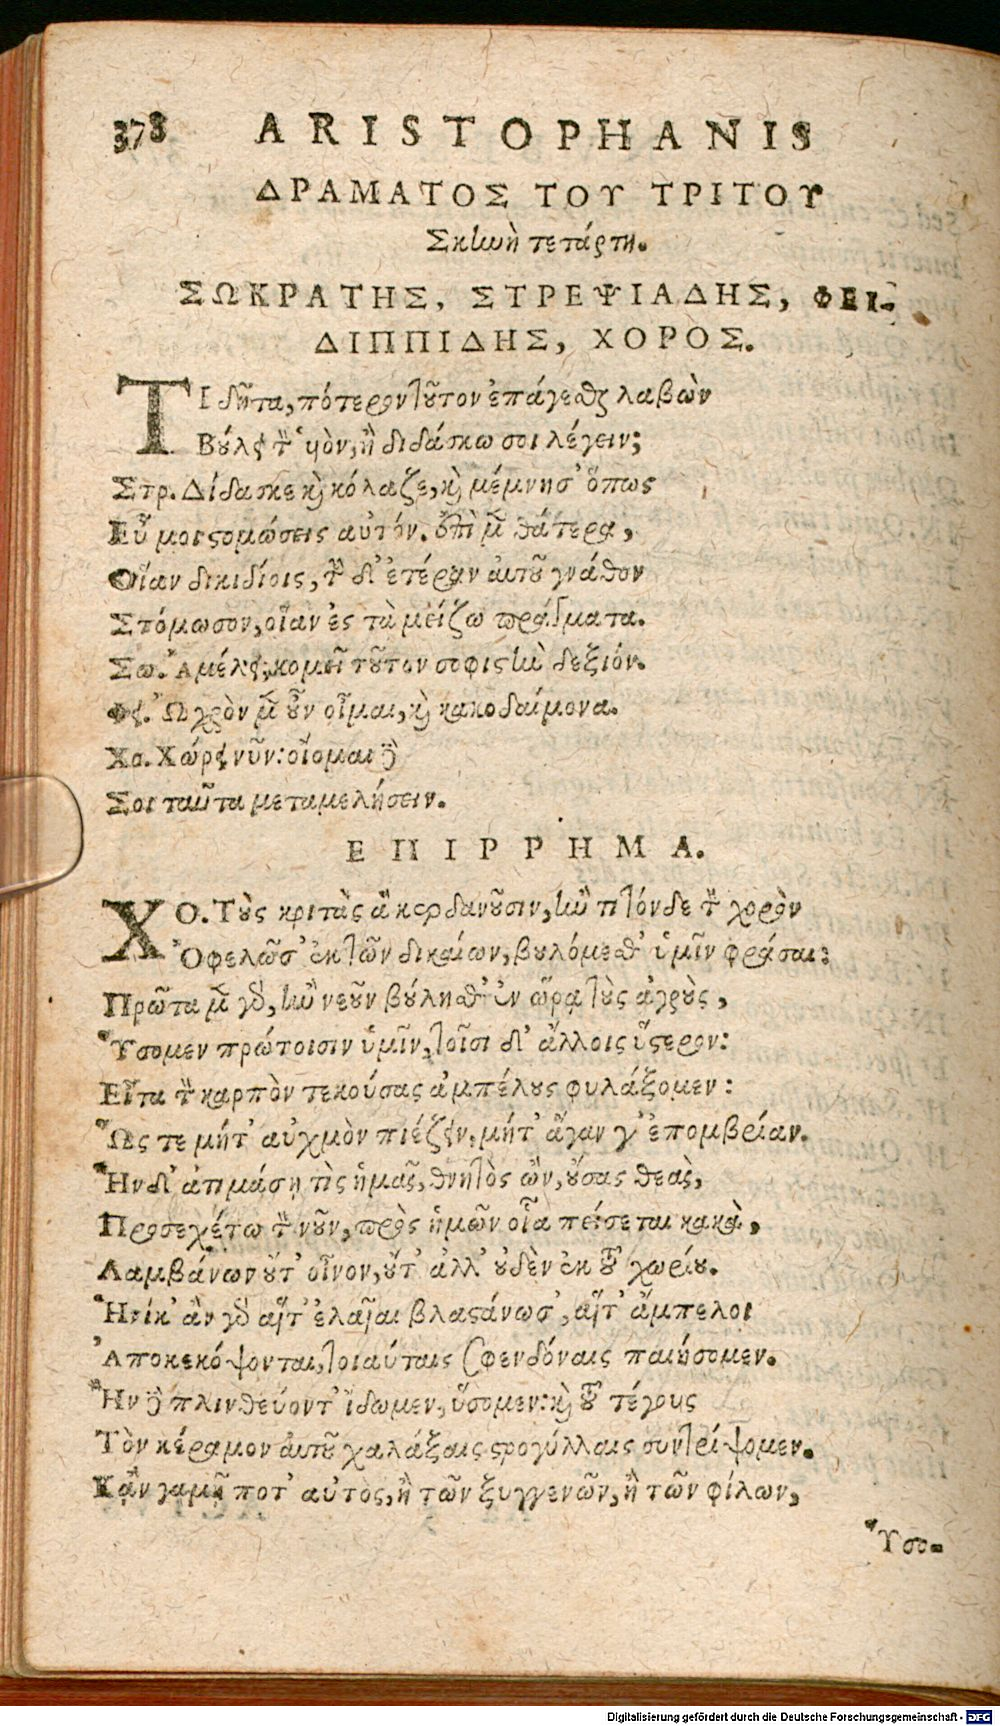 378 ARISTOPHANIS
ΔΡΑΜΑΤΟΣ ΤΟΥ ΤΡΙΤΟΥ
Σκηνὴ τετάρτη.
ΣΩΚΡΑΤΗΣ, ΣΤΡΕΨΙΑΔΗΣ, ΦΕΙ-
ΔΙΠΠΙΔΗΣ, ΧΟΡΟΣ.
ΤΙ δῆτα, πότερον τοῦτον ἐπάγεσθαι λαβὼν
Βούλει τὸν υἱὸν, ἢ διδάσκω σοι λέγειν;
Στρ. Δίδασκε καὶ κόλαζε, καὶ μέμνησ' ὅπως
Εὖ μοι στομώσεις αὐτόν. ἐπὶ μὲν θάτερα,
Οἵαν δικιδίοις, τὴν δ' ἑτέραν αὐτοῦ γνάθον
Στόμωσον, οἵαν ἐς τὰ μείζω πράγματα.
Σω. Ἀμέλει, κομιεῖ τοῦτον σοφιστὴν δεξιόν.
Φει. Ὠχρὸν μὲν οὖν οἶμαι, καὶ κακοδαίμονα.
Χο. Χώρει νῦν: οἴομαι δὲ
Σοι ταῦτα μεταμελήσειν.
ΕΠΙΡΡΗΜΑ.
ΧΟ. Τοὺς κριτὰς ἃ κερδανοῦσιν, ἢν τι τόνδε τὸν χορὸν
Ὀφελῶσ' ἐκ τῶν δικαίων, βουλόμεσθ' ὑμῖν φράσαι:
Πρῶτα μὲν γὰρ, ἢν νεοῦν βούλησθ' ἐν ὥρᾳ τοὺς ἀγροὺς,
Ὕσομεν πρώτοισιν ὑμῖν, τοῖσι δ' ἄλλοις ὕστερον:
Εἶτα τὸν καρπὸν τεκούσας ἀμπέλους φυλάξομεν:
Ὥς τε μήτ' αὐχμὸν πιέζειν, μήτ' ἄγαν γ' ἐπομβρίαν.
Ἢν δ' ἀτιμάσῃ τὶς ἡμᾶς, θνητὸς ὢν, οὔσας θεὰς,
Προσεχέτω τὸν νοῦν, πρὸς ἡμῶν οἷα πείσεται κακὰ,
Λαμβάνων οὔτ' οἶνον, οὔτ' ἀλλ' οὐδὲν ἐκ τοῦ χωρίου.
Ἡνίκ' ἂν γὰρ αἵτ' ἐλαῖαι βλαστάνωσ', αἵτ' ἄμπελοι
Ἀποκεκόψονται, τοιαύταις σφενδόναις παιήσομεν.
Ἢν δὲ πλινθεύοντ' ἴδωμεν, ὕσομεν: καὶ τοῦ τέγους
Τὸν κέραμον αὐτοῦ χαλάξαις στρογύλλαις συντρίψομεν.
Κἂν γαμῇ ποτ' αὐτὸς, ἢ τῶν ξυγγενῶν, ἢ τῶν φίλων,
Ὕσο-
Digitalisierung gefördert durch die Deutsche Forschungsgemeinschaft - DFG